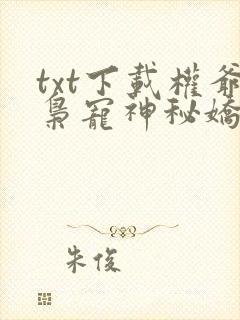 txt下載權爺
梟寵神秘嬌
朱俊